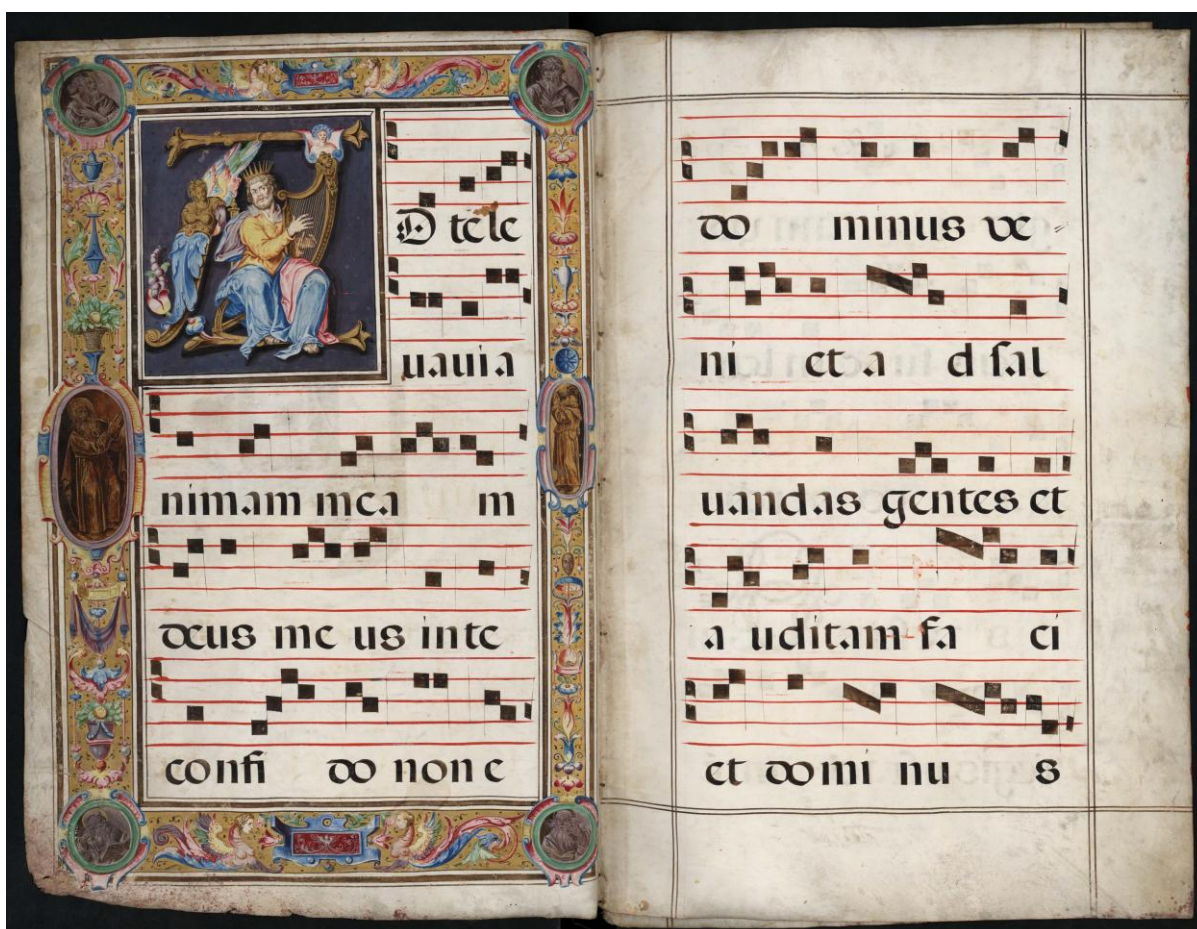 AD te le
uaui a
nimam mea m
deus me us in te
confi do non e
do minus ve
ni et a d sal
uandas gentes et
a uditam fa ci
et domi nu s